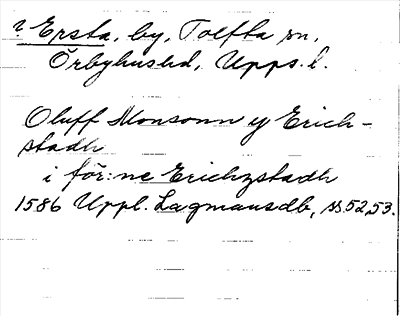 ? Ersta, by, Tolfta sn,
Örbyhushd, Upps. l.
Oluff Monsonn ij Erich-
stadh
i för:ne Erichzstadh
1586 Uppl. Lagmansdb, ss 52, 53.